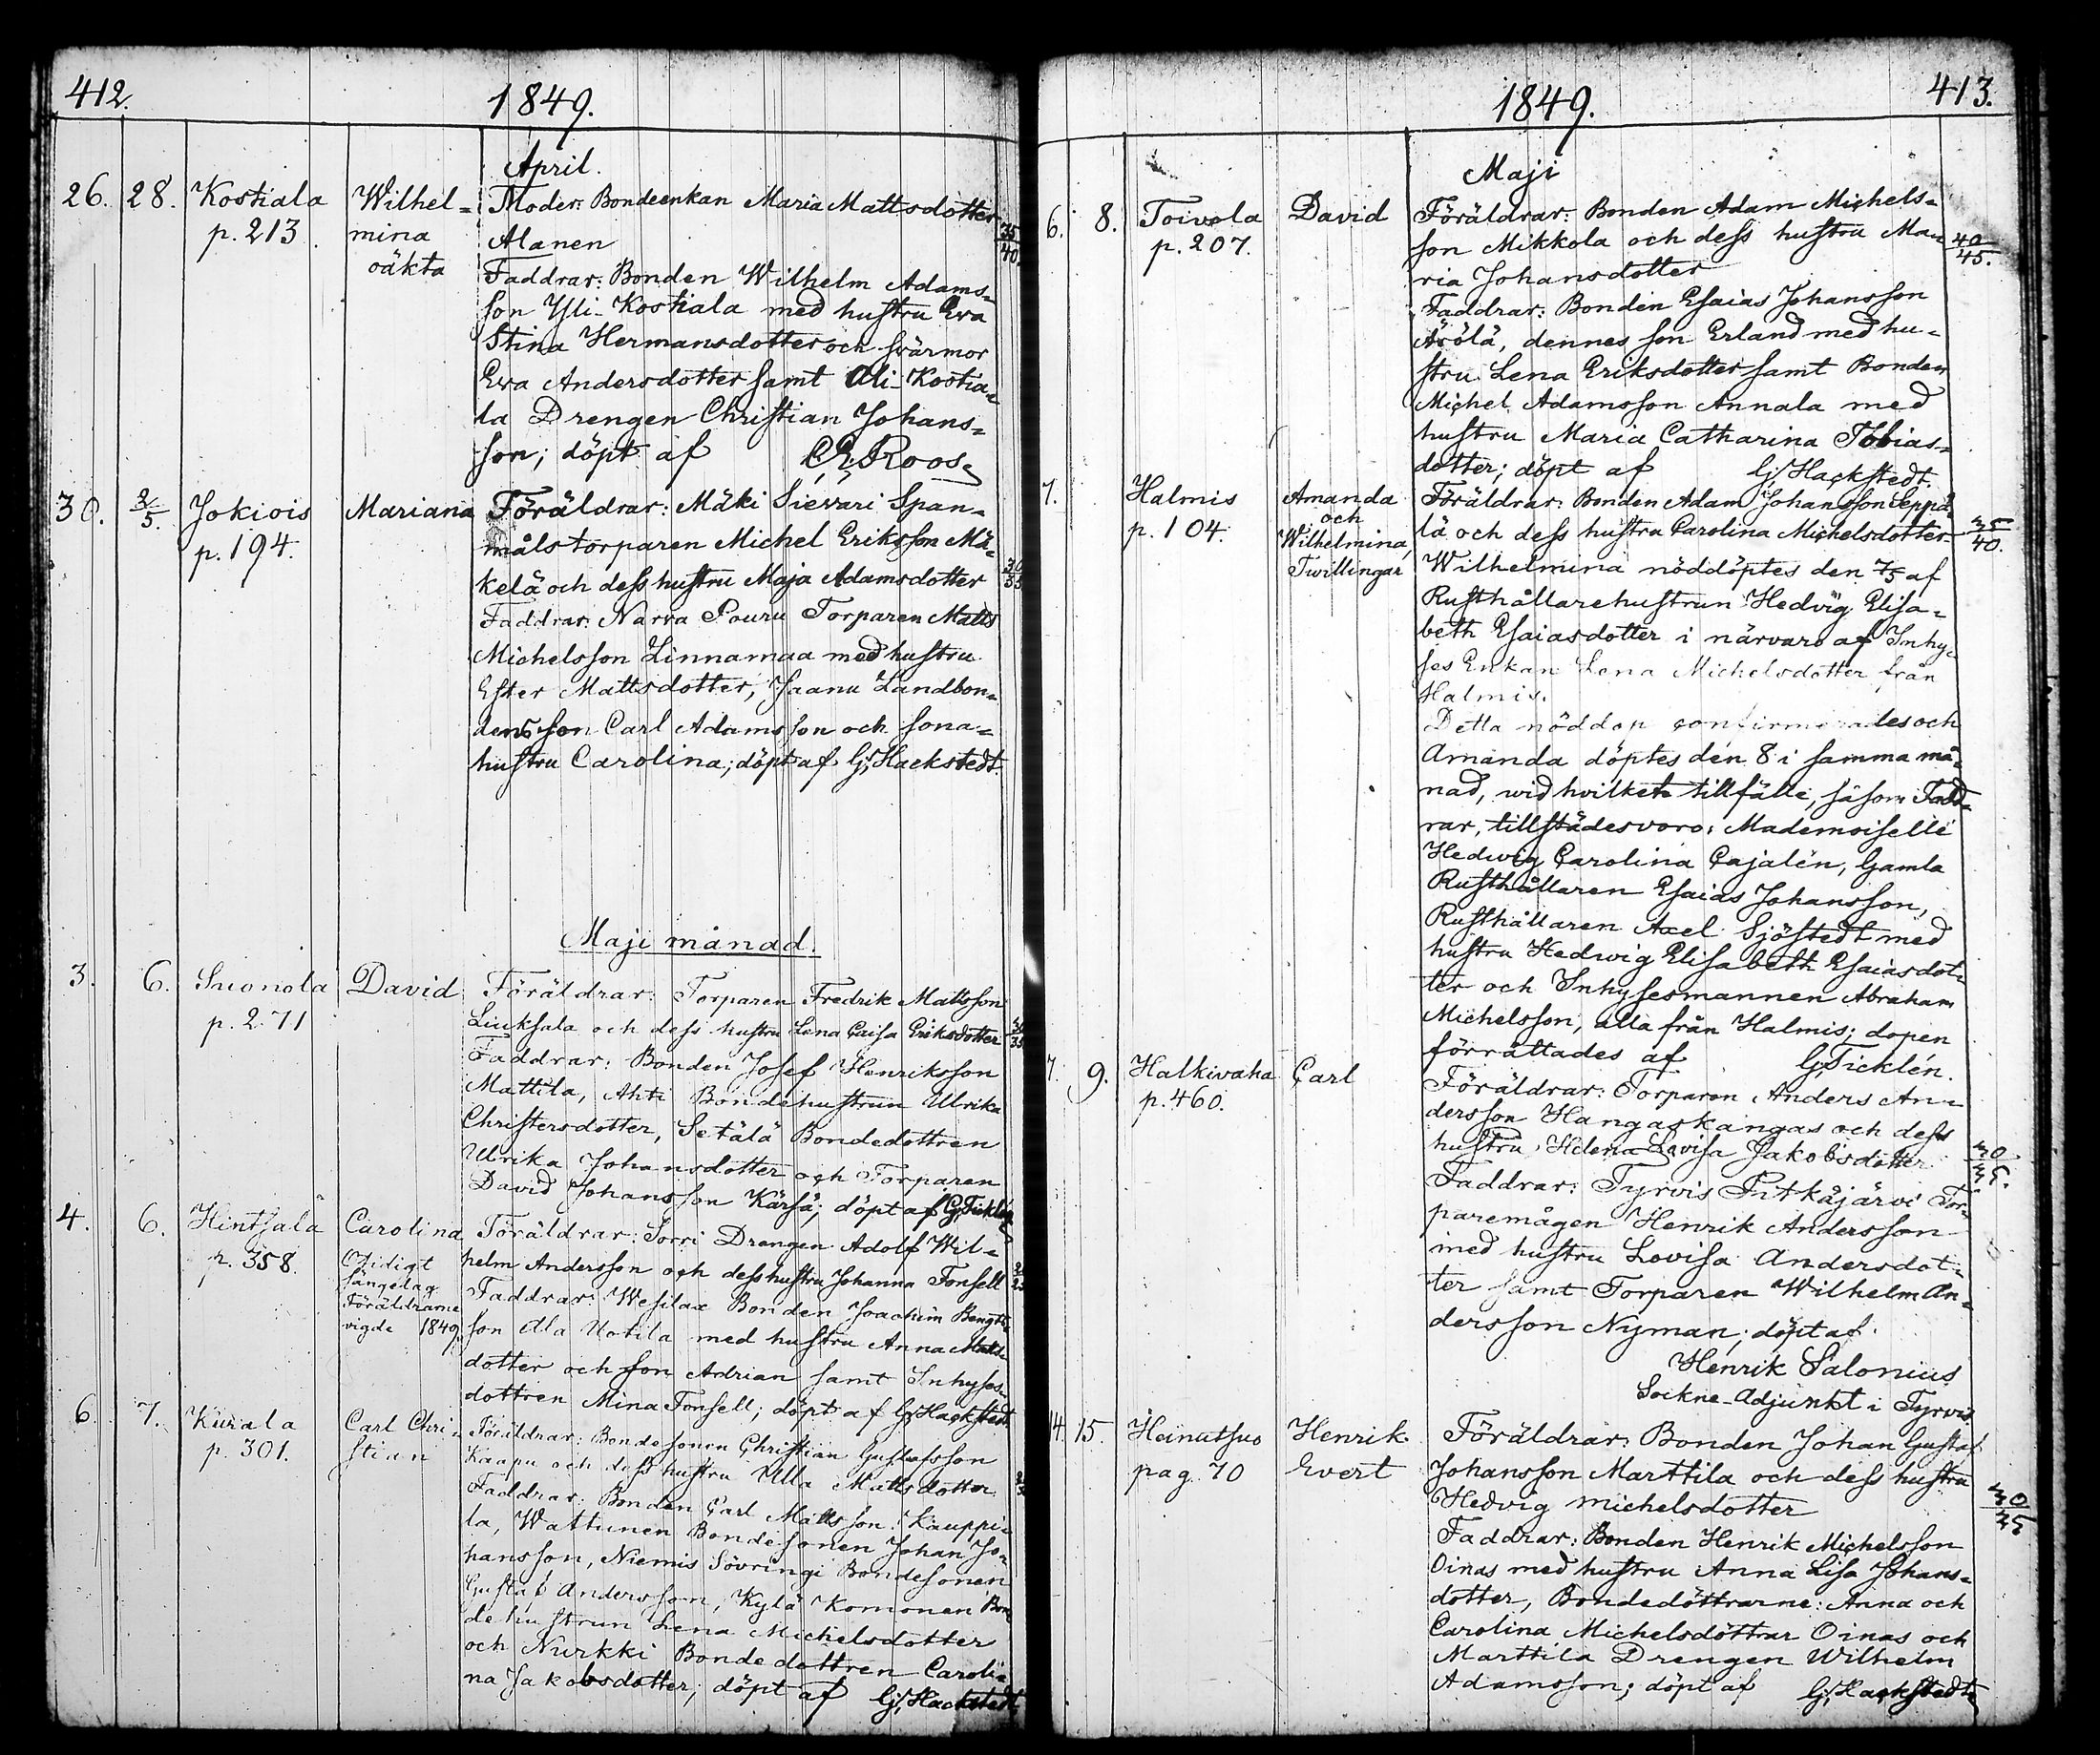 412.
1849.
April.
26. 28. Kostiala Wilhel- Moder: Bondeenkan Maria Mattsdotter
p. 213. mina Alanen 35/40.
oäkta Faddrar: Bonden Wilhelm Adams-
son Yli-Kostiala med hustru Eva
Stina Hermansdotter och svärmor
Eva Andersdotter samt Ali-Kostia-
la Drengen Christian Johans-
son; döpt af Roos.
30. 2/5. Jokiois Mariana Föräldrar: Mäki Sievari Span-
p. 194. målstorparen Michel Eriksson Mä-
kelä och dess hustru Maja Adamsdotter 30/35
Faddrar: Narva Pouru Torparen Matts
Michelsson Linnamaa med hustru
Ester Mattsdotter, Jaanu Landbon-
densson Carl Adamsson och sona-
hustru Carolina; döpt af Gj. Hackstedt.
Maji månad.
3. 6. Suonola David Föräldrar: Torparen Fredrik Mattsson
p. 271 Liuksala och dess hustru Lena Caisa Eriksdotter 30/35
Faddrar: Bonden Josef Henriksson
Mattila, Ahti Bondehustrun Ulrika
Christersdotter, Setälä Bondedottren
Ulrika Johansdotter och Torparen
David Johansson Kärsä; döpt af G. Ticklén
4. 6. Hintsala Carolina Föräldrar: Sorri Drengen Adolf Wil-
p. 358. Otidigt helm Andersson och dess hustru Johanna Fonsell
sängelag Faddrar: Wesilax Bonden Joachim Bengts-
Föräldrarne
vigde 1849. son Ala Uotila med hustru Anna Matts-
dotter och son Adrian samt Inhyses-
dottren Mina Fonsell; döpt af Gj. Hackstedt
6. 7. Kurala Carl Chri- Föräldrar: Bondesonen Christian Gustafsson
p. 301. stian Kaapu och dess hustru Ulla Mattsdotter
Faddrar: Bonden Carl Mattsson Kauppi-
la, Wattunen Bondesonen Johan Jo-
hansson, Niemis Sövringi Bondesonen
Gustaf Andersson, Kylä Komonen Bon-
dehustrun Lena Michelsdotter
och Nurkki Bondedottren Caroli-
na Jakobsdotter; döpt af Gj. Hackstedt.
413.
1849.
Maji
6. 8. Toivola David Föräldrar: Bonden Adam Michels-
p. 207. son Mikkola och dess hustru Ma- 40/45.
ria Johansdotter
Faddrar: Bonden Esaias Johansson
Äsölä, dennes son Erland med hu-
stru Lena Eriksdotter samt Bonden
Michel Adamsson Annala med
hustru Maria Catharina Tobias-
dotter; döpt af Gj. Hackstedt.
7. Halmis Amanda Föräldrar: Bonden Adam Johansson Seppä-
p. 104. och lä och dess hustru Carolina Michelsdotter 35/40.
Wilhelmina,
Twillingar Wilhelmina nöddöptes den 7/5 af
Rusthållarehustrun Hedvig Elisa-
beth Esaiasdotter i närvaro af Inhy-
ses Enkan Lena Michelsdotter från
Halmis.
Detta nöddop confirmerades och
Amanda döptes den 8 i samma må-
nad, wid hvilket tillfälle, såsom Fadd-
rar, tillstädesvoro: Mademoiselle
Hedwig Carolina Cajalén, Gamla
Rusthållaren Esaias Johansson,
Rusthållaren Axel Sjöstedt med
hustru Hedwig Elisabeth Esaiasdot-
ter och Inhysesmannen Abraham
Michelsson, alla från Halmis; dopen
förrättades af G. Ticklén.
7. 9. Halkivaha Carl Föräldrar: Torparen Anders An-
p. 460. dersson Hangaskangas och dess
hustru Helena Lovisa Jakobsdotter 30/35.
Faddrar: Tyrvis Pitkäjärvi Tor-
paremågen Henrik Andersson
med hustru Lovisa Andersdot-
ter samt Torparen Wilhelm An-
dersson Nyman; döpt af
Henrik Salonius
Sockne-Adjunkt i Tyrvis
14. 15. Heinatsuo Henrik Föräldrar: Bonden Johan Gustaf
pag. 70 Evert Johansson Marttila och dess hustru
Hedvig Michelsdotter 30/35
Faddrar: Bonden Henrik Michelsson
Oinas med hustru Anna Lisa Johans-
dotter, Bondedöttrarne: Anna och
Carolina Michelsdöttrar Oinas och
Marttila Drengen Wilhelm
Adamsson; döpt af Gj. Hackstedt